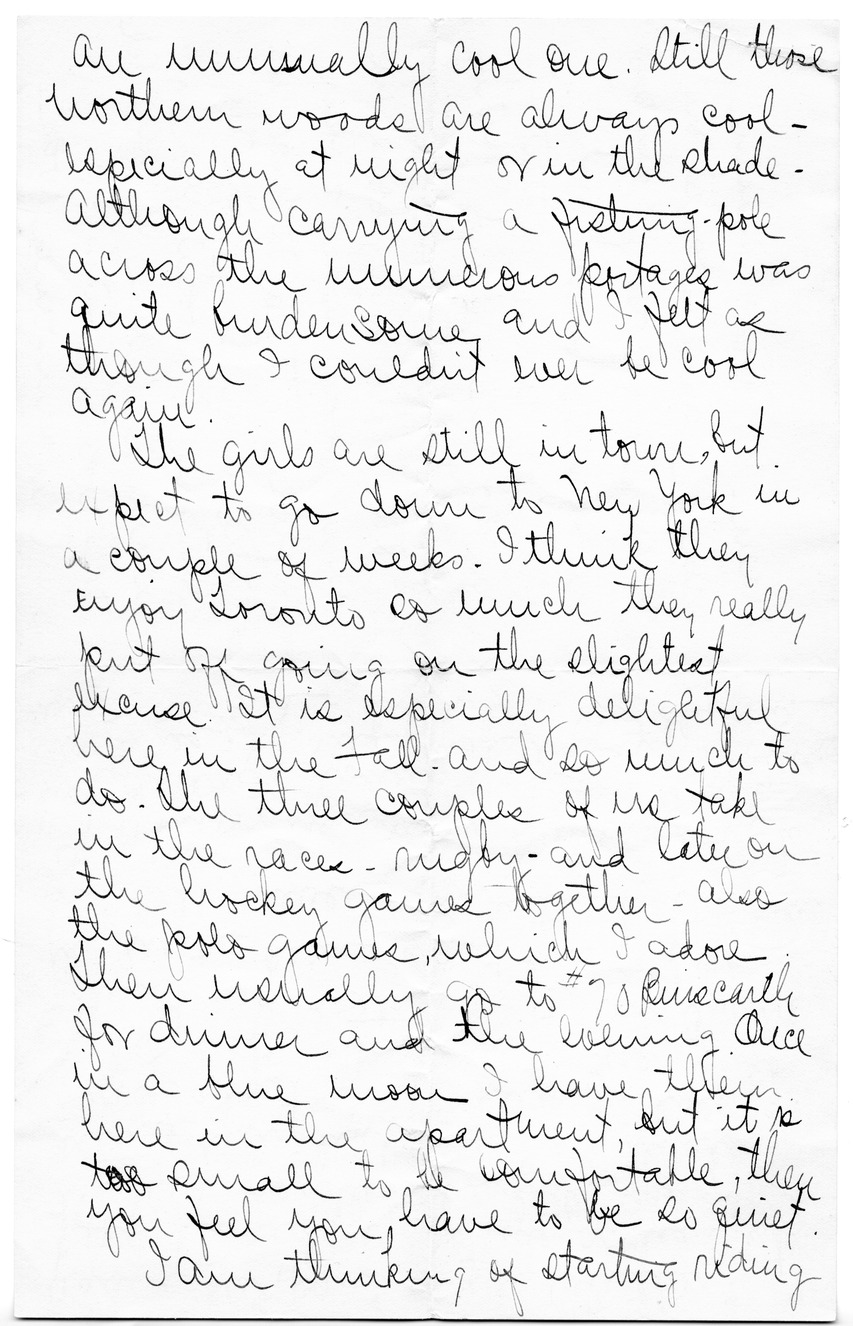 an unusually cool one. Still those
northern woods are always cool -
especially at night or in the shade -
Although carrying a fishing-pole
across the numerous portages was
quite burdensome, and I felt as
though I couldn't ever be cool
again.
The girls are still in town, but
expect to go down to New York in
a couple of weeks. I think they
enjoy Toronto so much they really
put off going on the slightest
excuse. It is especially delightful
here in the Fall - and so much to
do. The three couples of us take
in the races - rugby - and later on
the hockey games together - also
the polo games, which I adore.
Then usually go to #70 Binscarth
for dinner and the evening. Once
in a blue moon I have them
here in the apartment, but it is
too small to be comfortable, then
you feel you have to be so quiet.
I am thinking of starting riding